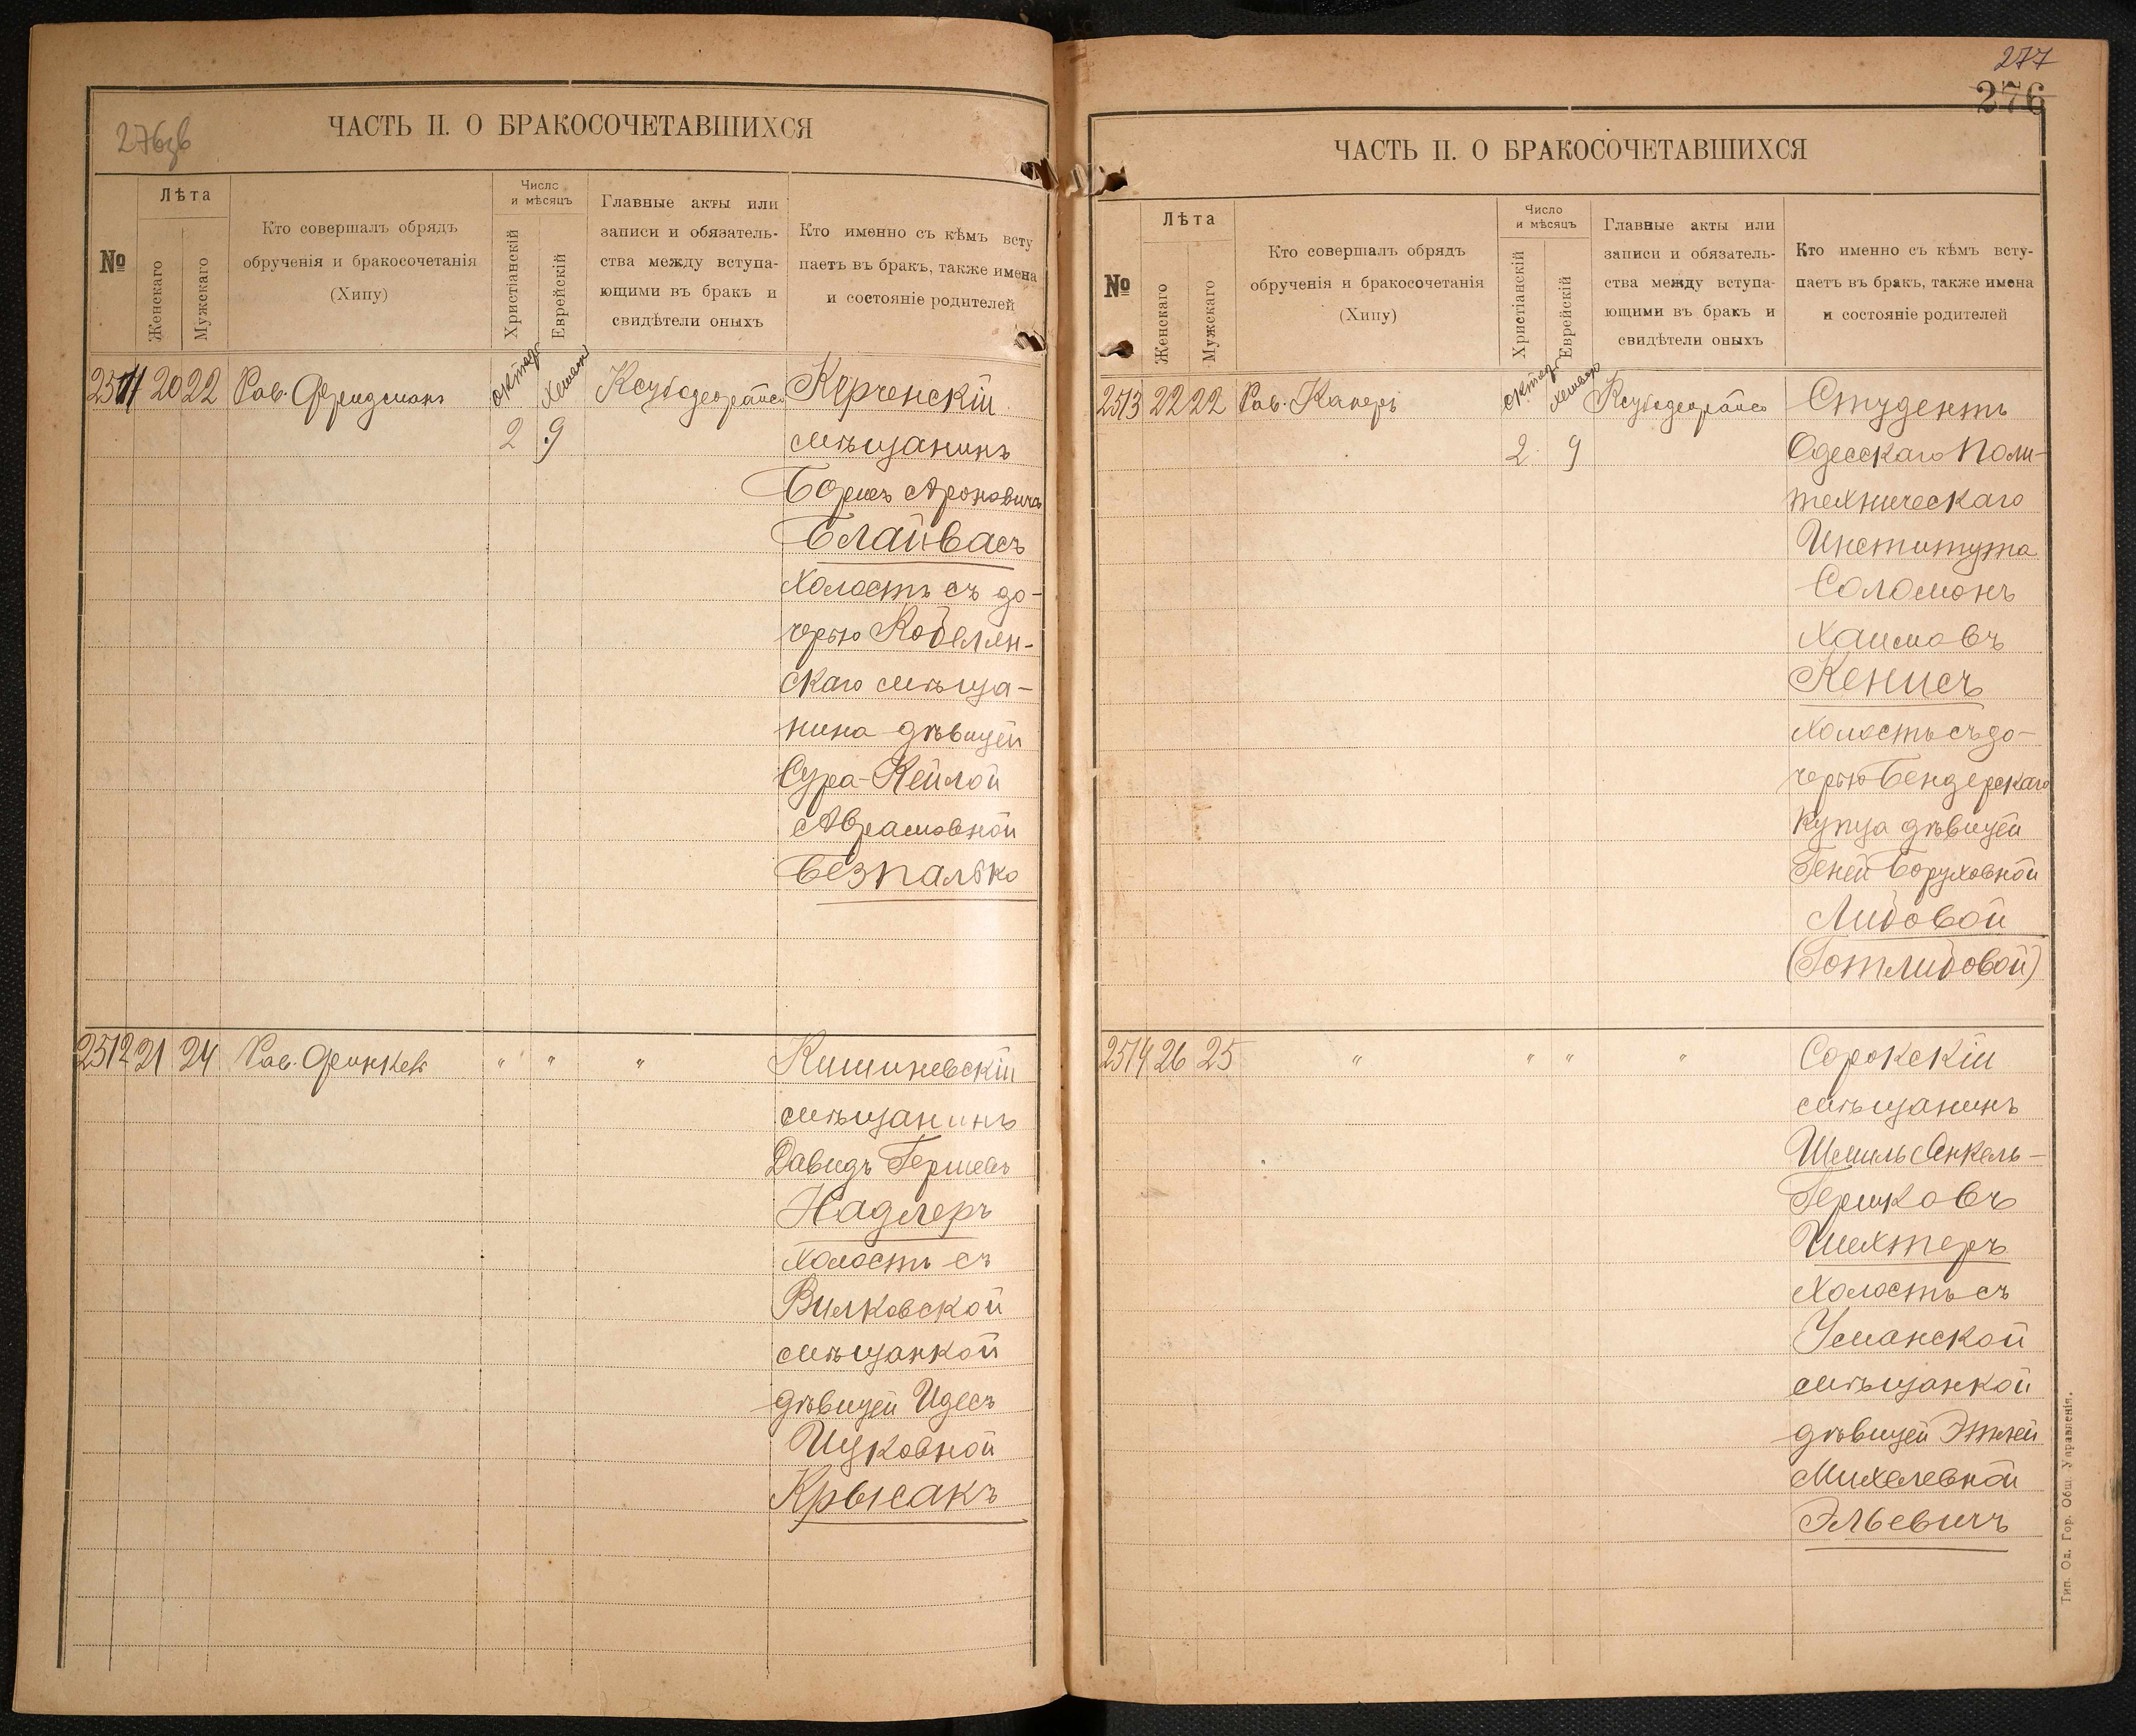 276зв
ЧАСТЬ II. О БРАКОСОЧЕТАВШИХСЯ
№
Лѣта
Женскаго
Мужскаго
Кто совершалъ обрядъ
обрученія и бракосочетанія
(Хипу)
Число
и мѣсяцъ
Христіанскій
Еврейскій
Главные акты или
записи и обязатель-
ства между вступа-
ющими въ бракъ и
свидѣтели оныхъ
Кто именно съ кѣмъ всту
паетъ въ бракъ, также имена
и состояніе родителей
2511 20 22 Рав. Фридманъ
2 9
Керченскій
мѣщанинъ
Борисъ Ароновичъ
Блайвасъ
холостъ съ до-
черью Кобелян-
скаго мѣща-
нина дѣвицей
Сура-Кейлой
Абрамовной
Безпалько
2512 21 24 Рав. Финкель " " "
Кишиневскій
мѣщанинъ
Давидъ Гершевъ
Надлеръ
холостъ съ
Вилковской
мѣщанкой
дѣвицей Идесъ
Ицковной
Крысакъ
277
276
ЧАСТЬ II. О БРАКОСОЧЕТАВШИХСЯ
№
Лѣта
Женскаго
Мужскаго
Кто совершалъ обрядъ
обрученія и бракосочетанія
(Хипу)
Число
и мѣсяцъ
Христіанскій
Еврейскій
Главные акты или
записи и обязатель-
ства между вступа-
ющими въ бракъ и
свидѣтели оныхъ
Кто именно съ кѣмъ всту-
паетъ въ бракъ, также имена
и состояніе родителей
2513 22 22 Рав. Каперъ
2 9
Студентъ
Одесскаго Поли-
техническаго
Института
Соломонъ
Хаимовъ
Кенисъ
холостъ съ до-
черью Бендерскаго
купца дѣвицей
Геней Боруховной
Либовой
(Готлибовой)
2514 26 25 " " " "
Сорокскій
мѣщанинъ
Шмиль Янкель-
Гершковъ
Шехтеръ
холостъ съ
Уманской
мѣщанкой
дѣвицей Этлей
Михелевной
Эльевичъ
Тип. Од. Гор. Общ. Управленія.